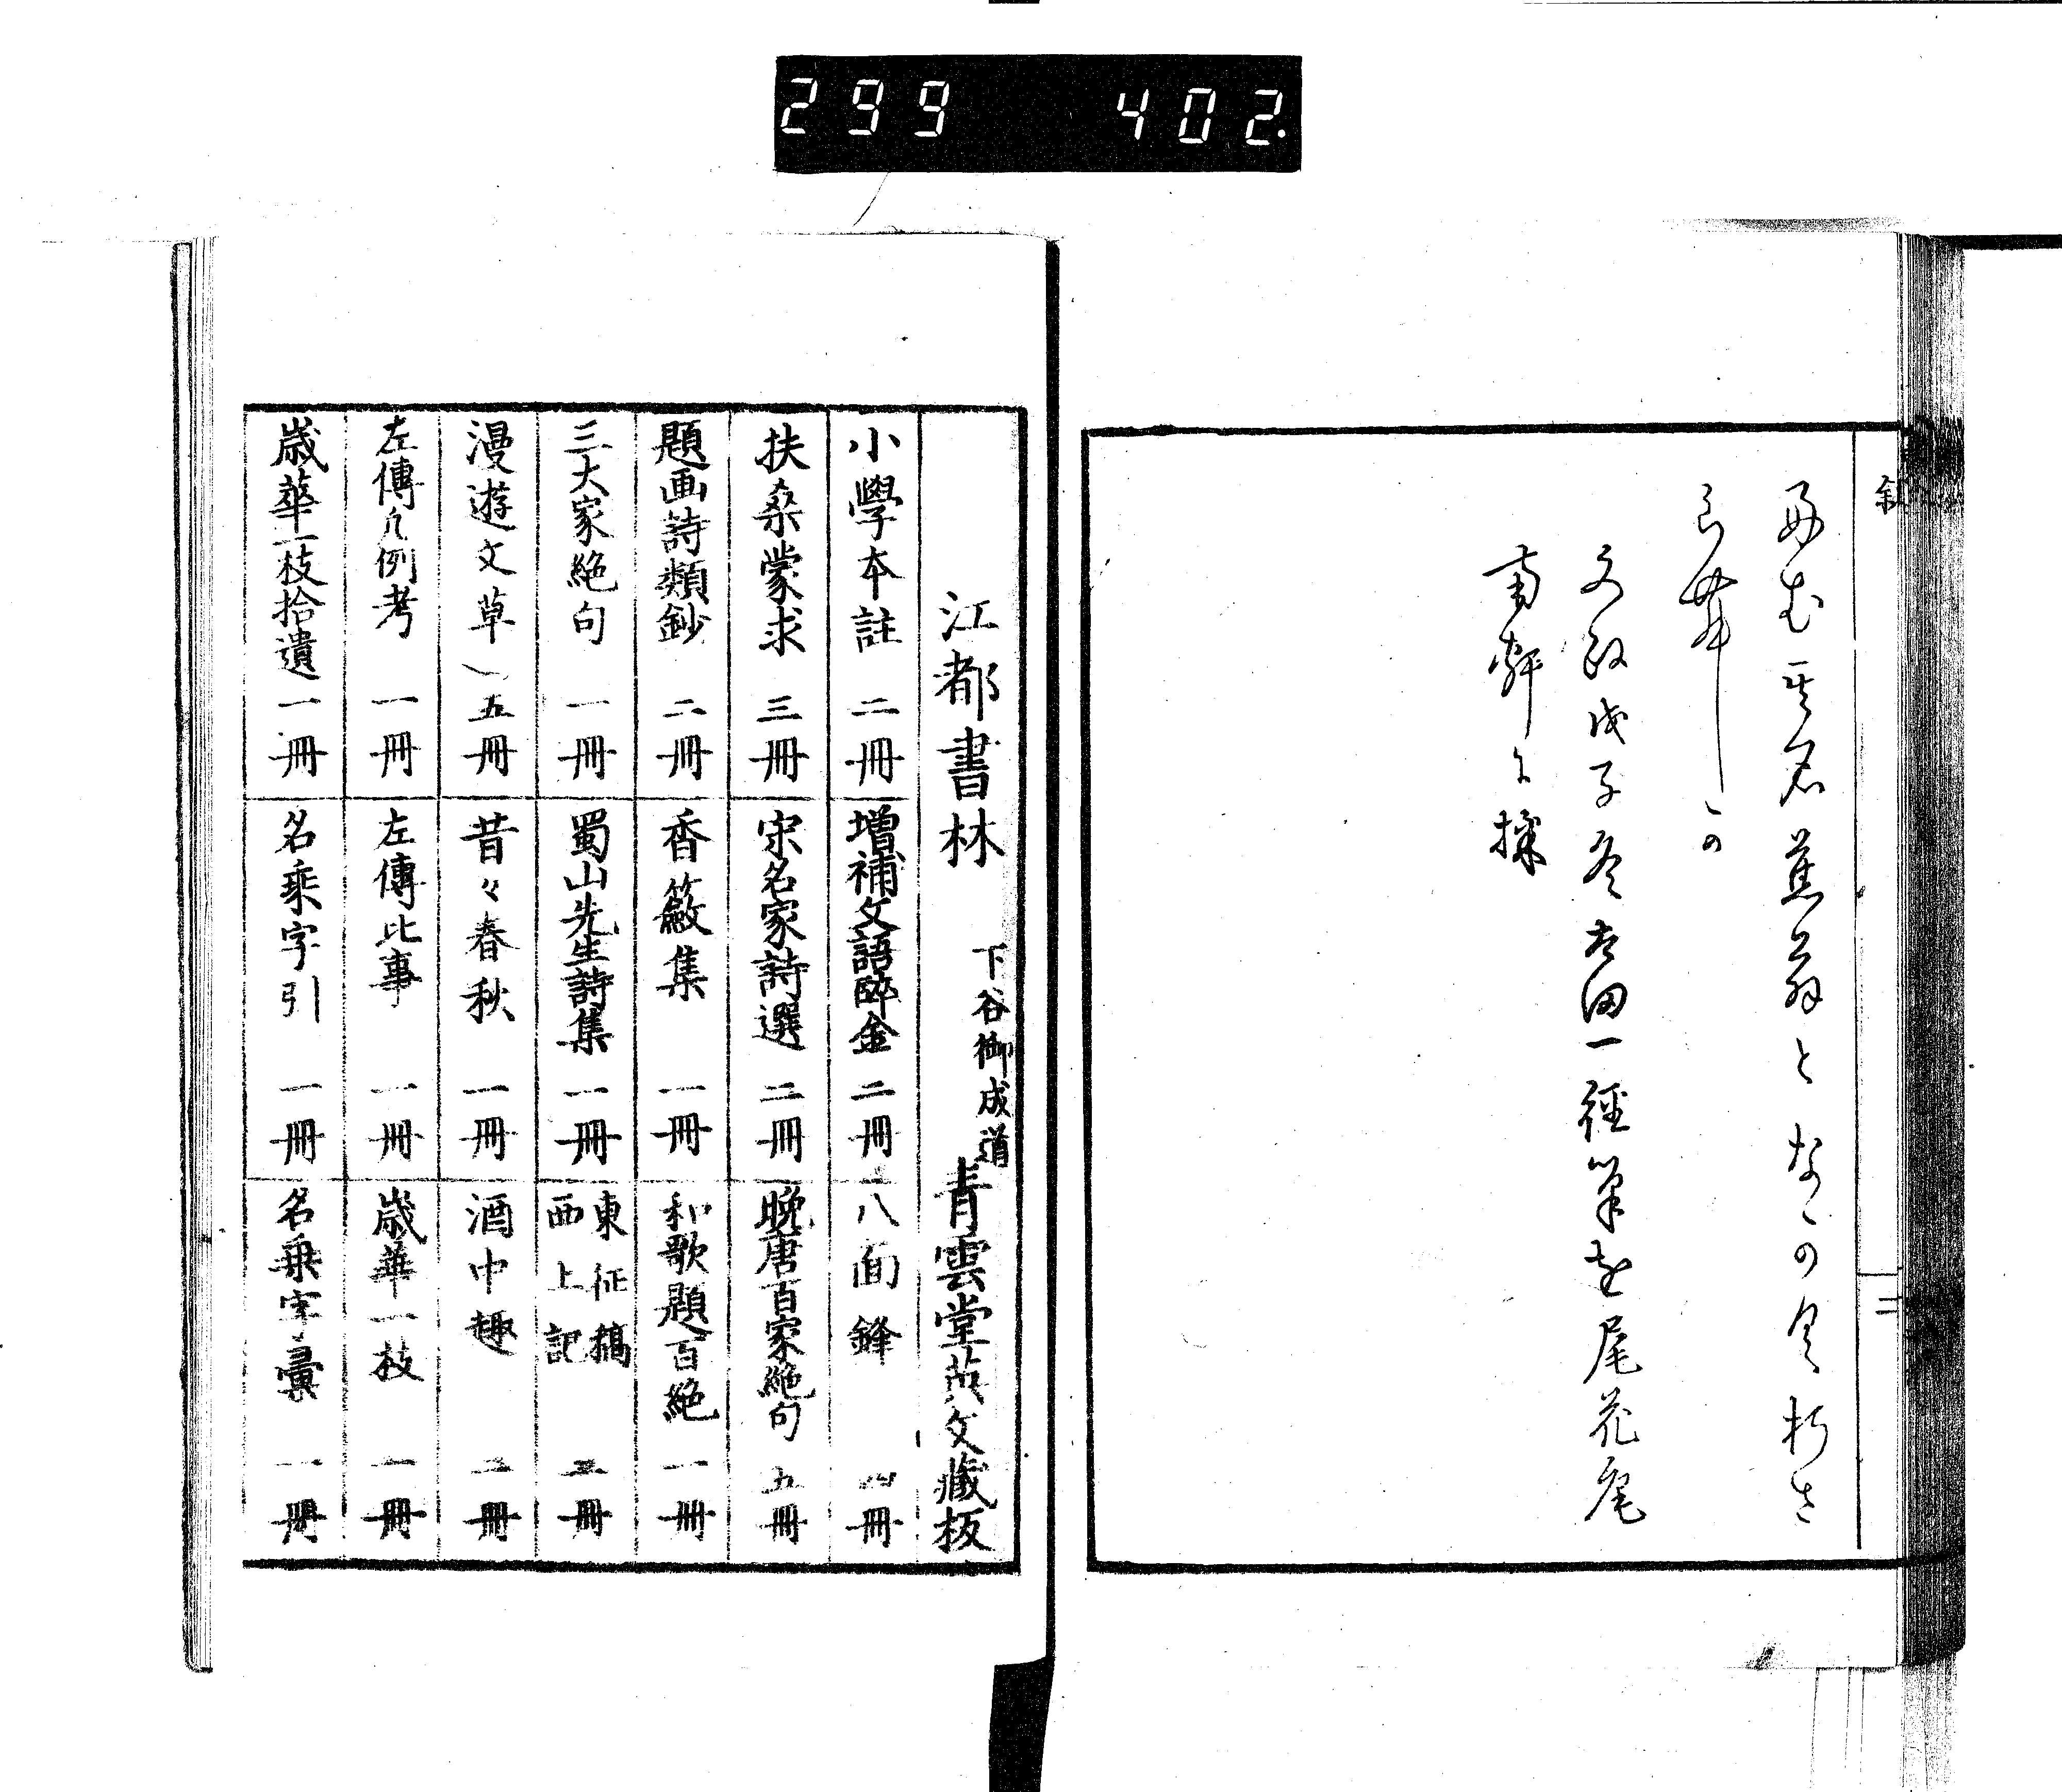 299 402.
叙
文政戊子冬吉田一徑筆を尾花庵
南軒に採
二
江都書林 下谷御成道 青雲堂英文藏板
小學本註 二冊
増補文語碎金 二冊
八面鋒 四冊
扶桑蒙求 三冊
宋名家詩選 二冊
晩唐百家絶句 五冊
題画詩類鈔 二冊
香籢集 一冊
和歌題百絶 一冊
三大家絶句 一冊
蜀山先生詩集 一冊
東征稿
西上記 三冊
漫遊文草 五冊
昔々春秋 一冊
酒中趣 二冊
左傳凡例考 一冊
左傳比事 一冊
歳華一枝 一冊
歳華一枝拾遺 一冊
名乘字引 一冊
名乗字彙 一冊